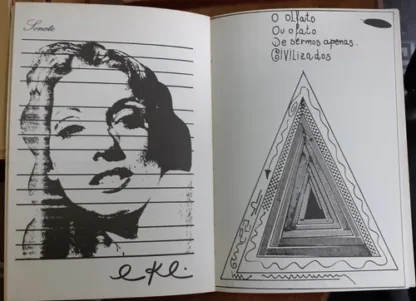 Soneto
eKe.
O Olfato
Ou o fato
De sermos apenas.
CIVILIZADOS